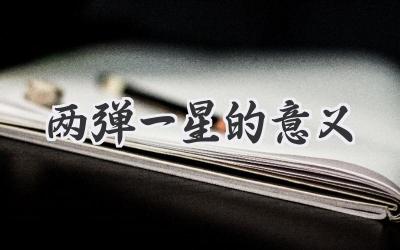 两弹一星的意义